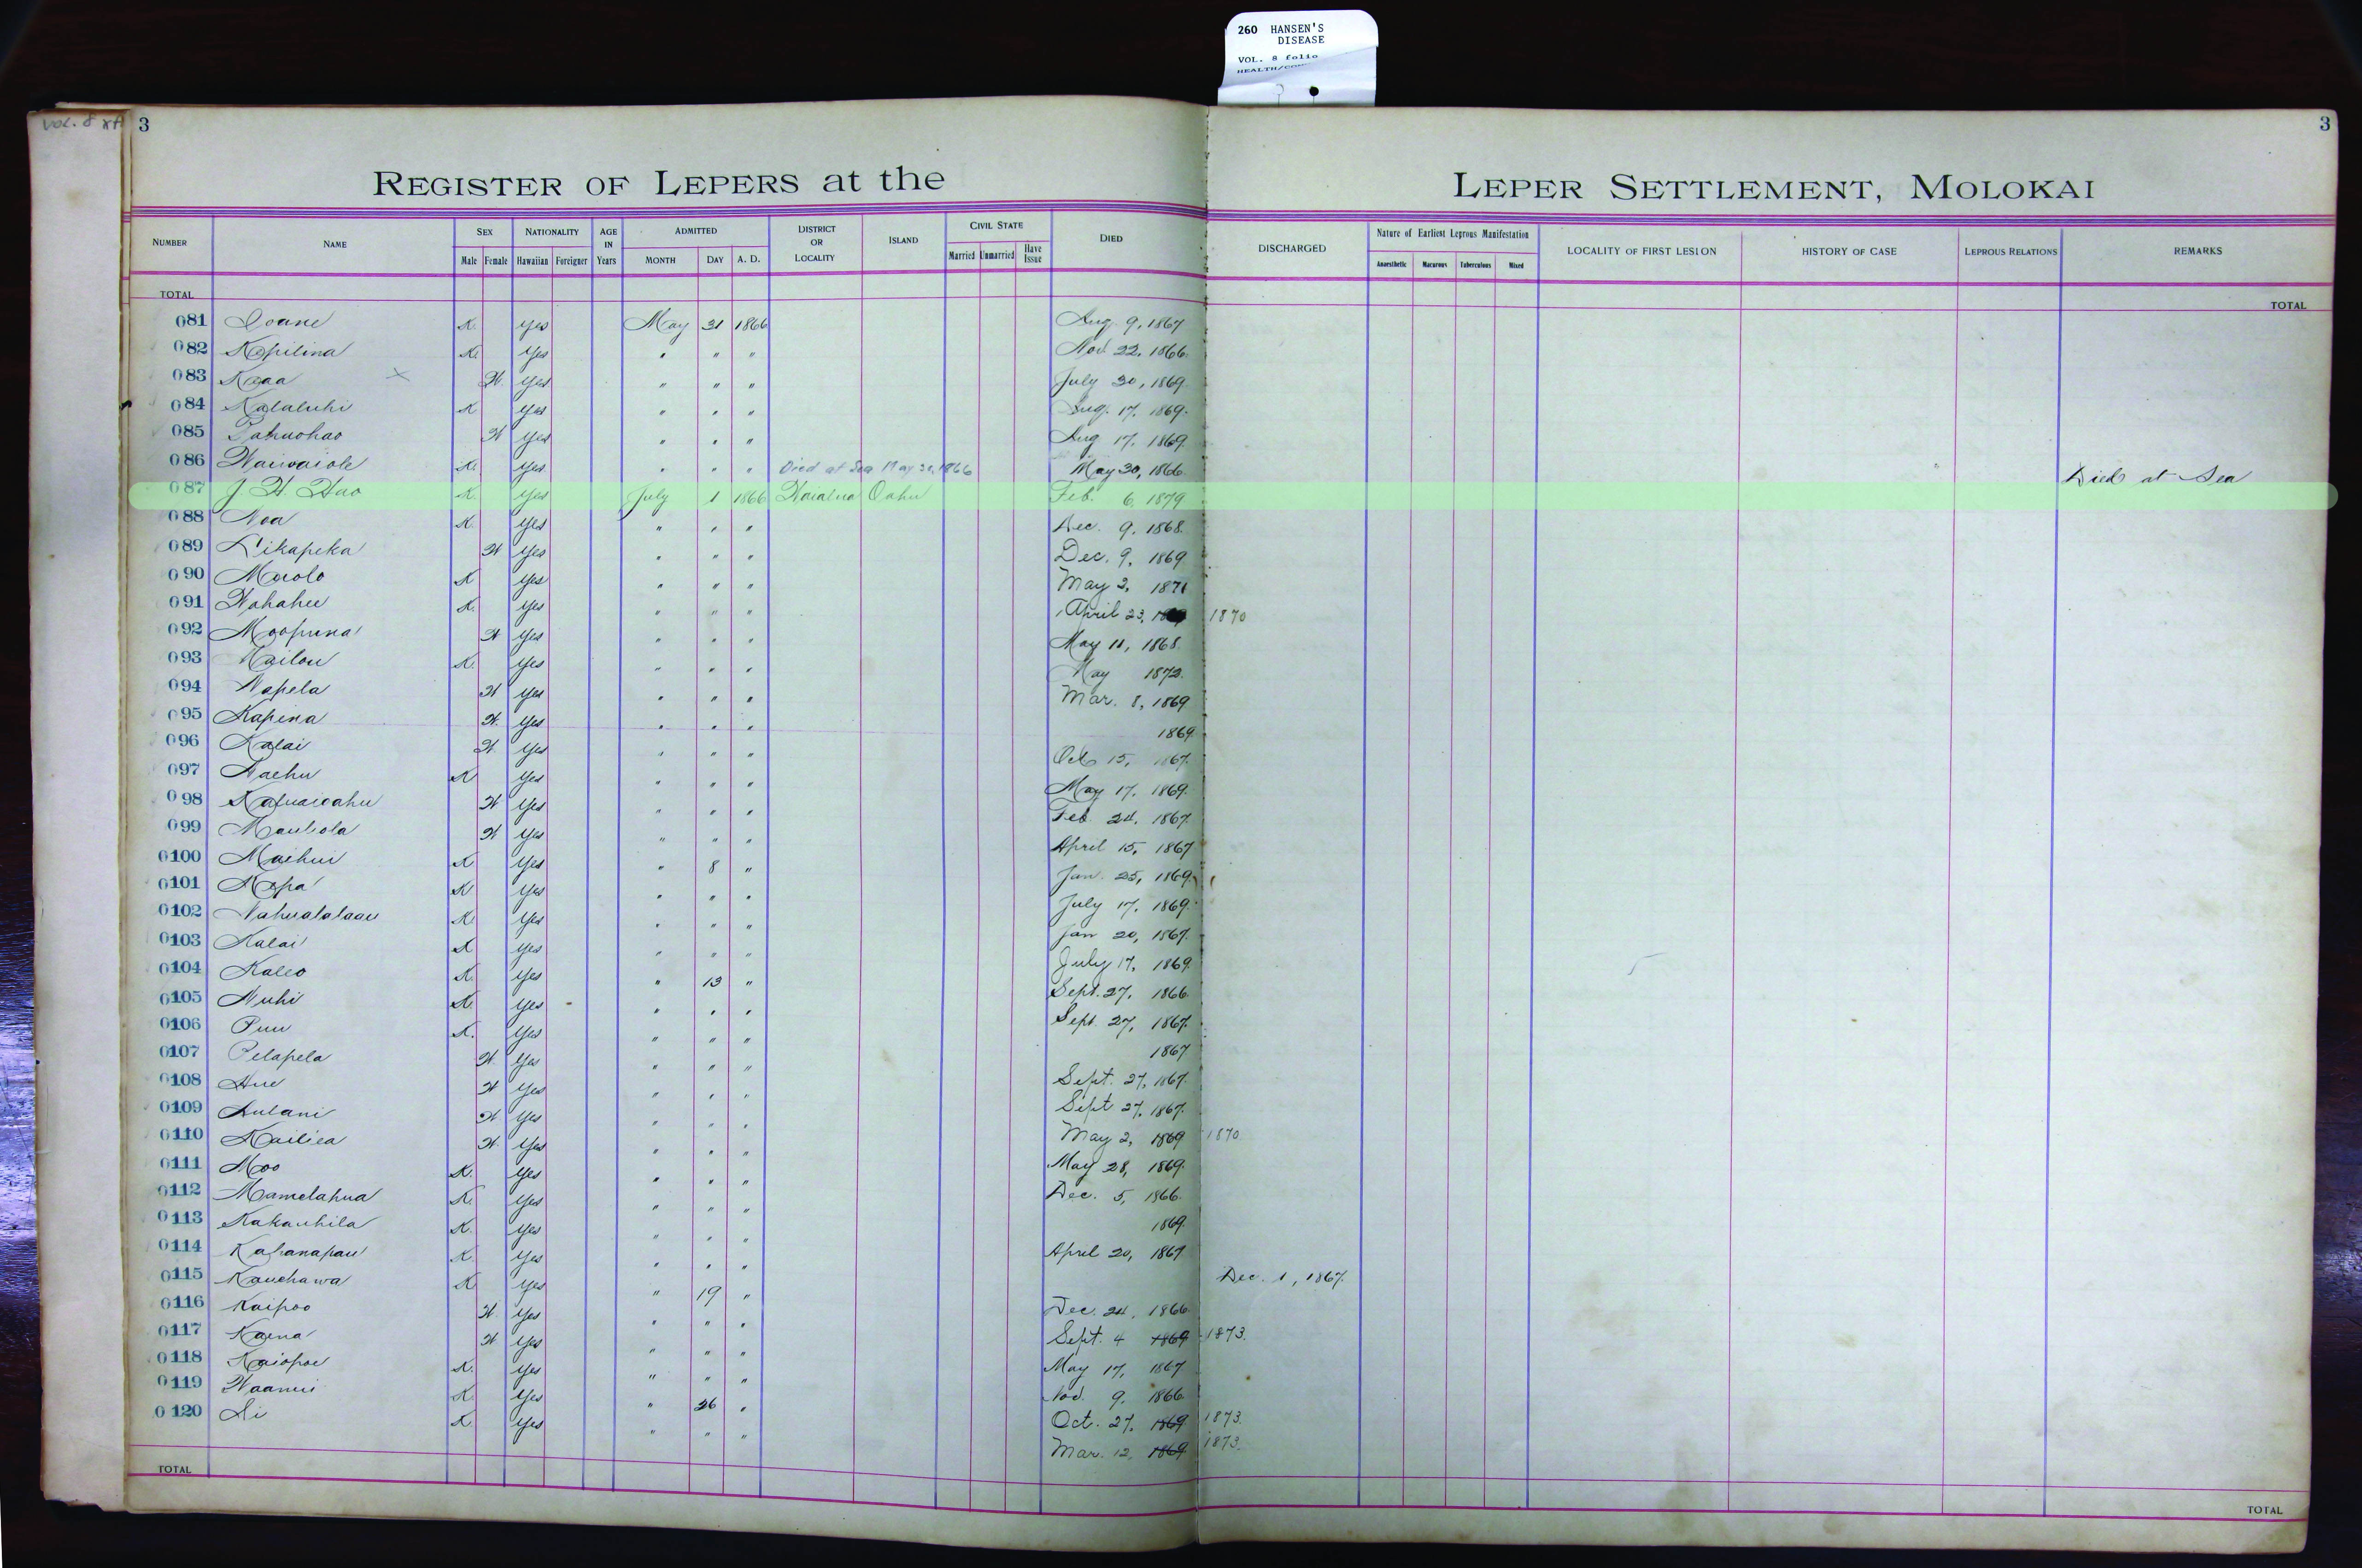 260 HANSEN'S
DISEASE
VOL. 8 folio
VOL. 8
3
3
REGISTER OF LEPERS at the LEPER SETTLEMENT, MOLOKAI
NUMBER NAME SEX Male Female NATIONALITY Hawaiian Foreigner AGE IN Years ADMITTED MONTH DAY A. D. DISTRICT OR LOCALITY ISLAND CIVIL STATE Married Unmarried Have Issue DIED DISCHARGED Nature of Earliest Leprous Manifestation Anaesthetic Macurous Tuberculous Mixed LOCALITY OF FIRST LESION HISTORY OF CASE LEPROUS RELATIONS REMARKS
TOTAL TOTAL
081 Ioane K. Yes May 31 1866 Aug. 9, 1867
082 Kapilina K. Yes " " " Nov. 22, 1866.
083 Kaaa W. Yes " " " July 30, 1869.
084 Kalaluhi K Yes " " " Aug. 17, 1869.
085 Pahuohao W Yes " " " Aug 17, 1869.
086 Waiwaiole K. Yes " " " Died at Sea May 30, 1866 May 30, 1866. Died at Sea
087 J. H. Hao K. Yes July 1 1866 Waialua Oahu Feb. 6, 1879
088 Noa K. Yes " " " Dec. 9, 1868.
089 Likapeka W Yes " " " Dec. 9, 1869.
090 Maolo K Yes " " " May 2, 1871
091 Wahahee K. Yes " " " April 23, 1870
092 Moopuna W Yes " " " May 11, 1868.
093 Kailou K. Yes " " " May 1872.
094 Napela W Yes " " " Mar. 8, 1869
095 Kapina W. Yes " " " 1869.
096 Kalai W. Yes " " " Oct 15, 1867.
097 Naehu K Yes " " " May 17, 1869.
098 Kapuaioahu W Yes " " " Feb. 24, 1867.
099 Mauliola W Yes " " " April 15, 1867
0100 Maihui K Yes " 8 " Jan. 25, 1869.
0101 Mopa K Yes " " " July 17, 1869.
0102 Nahualalaau K. Yes " " " Jan 20, 1867.
0103 Kalai K Yes " " " July 17, 1869.
0104 Kaleo K. Yes " 13 " Sept. 27, 1866.
0105 Nuhi K. Yes " " " Sept. 27, 1867.
0106 Puu K. Yes " " " 1867
0107 Pelapela W. Yes " " " Sept. 27, 1867.
0108 Hue W Yes " " " Sept 27, 1867.
0109 Aulani W. Yes " " " May 2, 1869 1870.
0110 Kailiea W. Yes " " " May 28, 1869.
0111 Moo K. Yes " " " Dec. 5, 1866.
0112 Mamelahua K. Yes " " " 1869.
0113 Kakauhila K. Yes " " " April 20, 1867
0114 Kahanapau K. Yes " " " Dec. 1, 1867.
0115 Kauehawa K. Yes " 19 " Dec. 24, 1866.
0116 Kaipoo W. Yes " " " Sept. 4 1869 1873.
0117 Kaena W Yes " " " May 17, 1867
0118 Kaiopoe K. Yes " " " Nov. 9, 1866.
0119 Waanui K. Yes " 26 " Oct. 27, 1869 1873.
0120 Li K. Yes " " " Mar. 12, 1869 1873.
TOTAL TOTAL